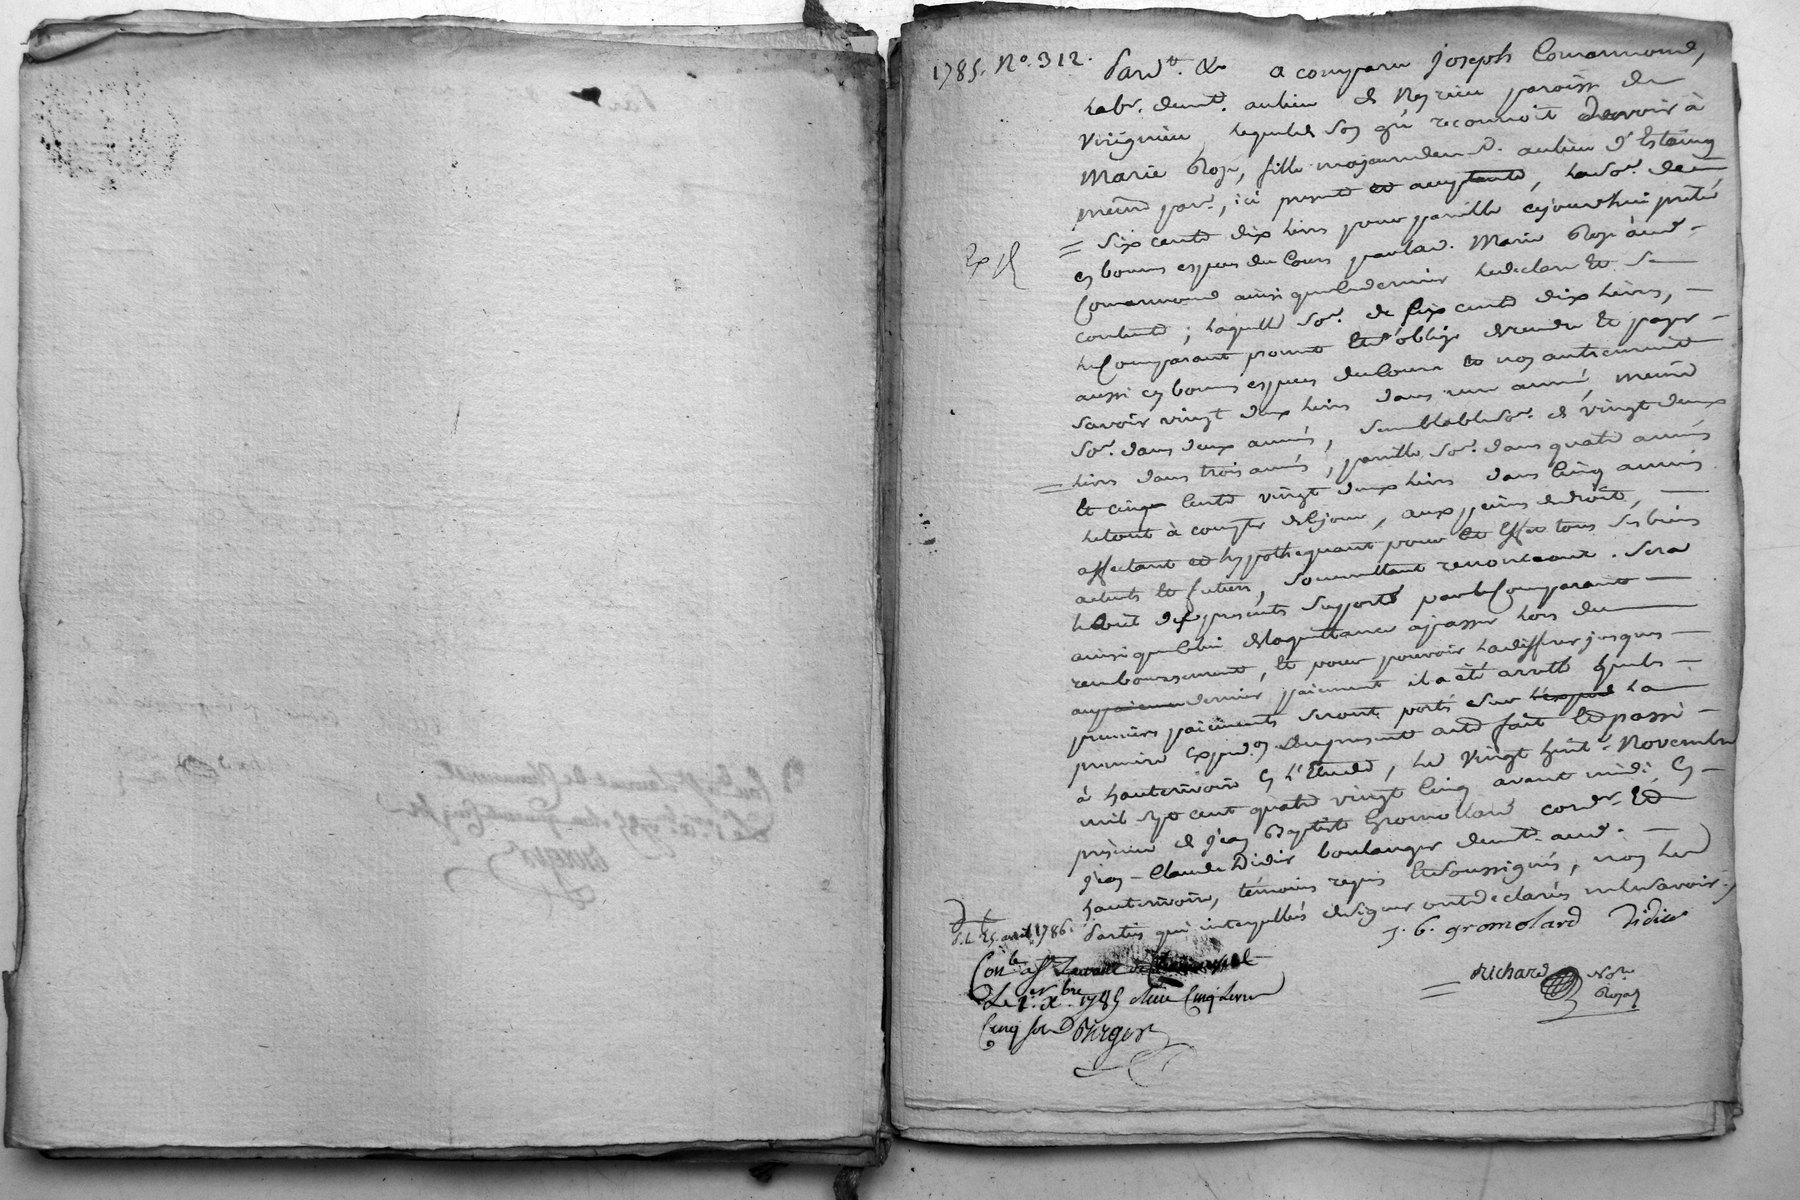 1785. No. 312.
Pard.t &a a comparu joseph Comarmond,
labr. demt. au lieu de Neyrieu paroisse de
Virignieu lequel de son gré reconnoit devoir à
Marie Roje, fille majeure dem.t au lieu d'Estaing
même par., ici presente et acceptante, la so.e de
= Six cents dix livres pour pareille cejourdhui prêté
en bonnes especes du Cours par lad. Marie Roje aud.
Comarmond ainsi que le dernier le declare et se
contente; laquelle so.e de six cents dix livres,
le Comparant promet et s'oblige de rendre et payer
aussi en bonnes especes du Cours et non autrement
savoir vingt deux livres dans une année, même
so.e dans deux années, semblable so.e de vingt deux
livres dans trois années, pareille so.e dans quatre années
et cinq cents vingt deux livres dans cinq années
le tout à compter de ce jour, aux peines de droit,
affectant et hypothequant pour cet effet tous ses biens
acuels et futurs, soumettant renonceant. Sera
le coût des presents supporté par le Comparant
ainsi que celui de la quittance à passer lors du
remboursement, et pour pouvoir la differer jusques
au dernier paiement il a été arreté que les
premiers paiements seront portés sur la
premiere exped.on du present acte fait et passé
à hauterivoire en l'Etude, le vingt huit Novembre
mil sept cent quatre vingt cinq avant midi, en
présence de jean Baptiste Gromollard cord.r et
jean-Claude Didier boulanger dem.t aud.
hauterivoire, témoins requis et soussignés, non les
Parties qui interpellées de signer ont declarés ne le savoir.
j. b. gromolard Didier
richard No.re
Royal
D. L. 25. avril 1786.
Con.lé a St Laurent de Chamousset
Le 1.er X.bre 1785 Reçu Cinq livres
Cinq sols Purgor